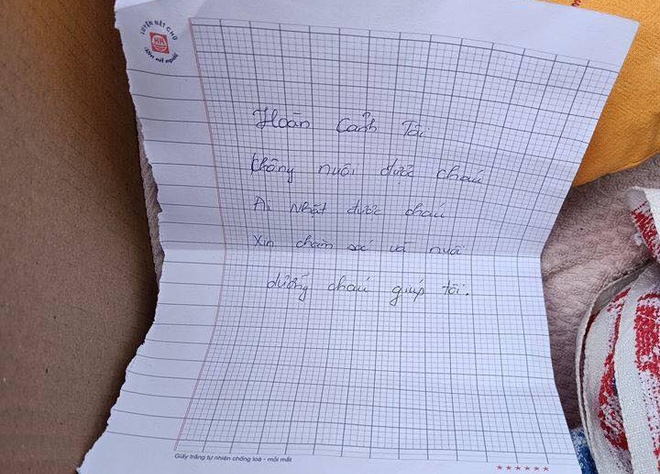 LUYỆN NẾT CHỮ
RÈN NẾT NGƯỜI
Hoàn Cảnh Tôi
không nuôi được cháu
Ai Nhặt được cháu
Xin chăm sóc và nuôi
dưỡng cháu giúp tôi.
Giấy trắng tự nhiên chống loá - mỏi mắt